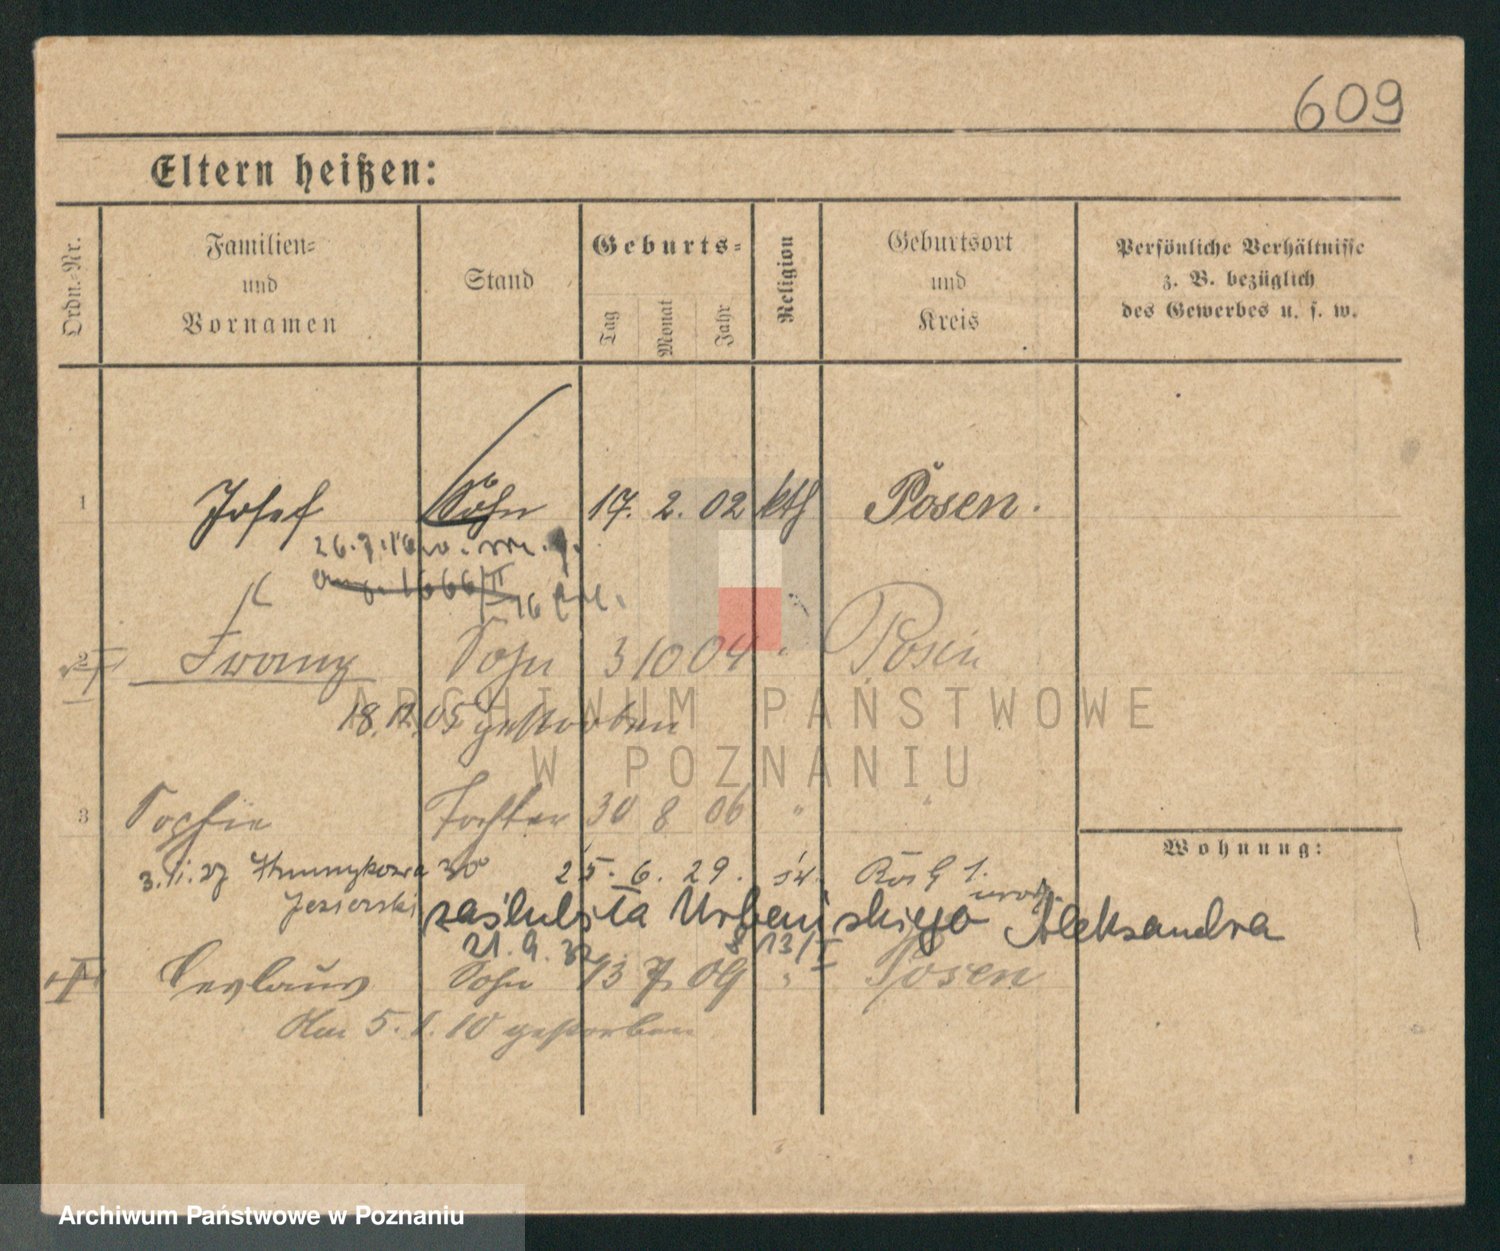 609
Eltern heißen:
Ordn.-Nr.
Familien-
und
Vornamen
Stand
Geburts-
Tag
Monat
Jahr
Religion
Geburtsort
und
Kreis
Persönliche Verhältnisse
z. B. bezüglich
des Gewerbes u. s. w.
1 Josef Sohn 17. 2. 02 kth Posen.
26.7.16
2 Franz Sohn 3 10 04 " Posen
18.12.05 gestorben
3 Sophie Tochter 30 8 06 " "
Wohnung:
3.11.27 30 25. 6. 29.
Jezierski zaślubiła Urbańskiego Aleksandra
21.9.32 13/I
Ceslaus Sohn 13 7 09 " Posen
Am 5. 1. 10 gestorben
ARCHIWUM PAŃSTWOWE
W POZNANIU
Archiwum Państwowe w Poznaniu